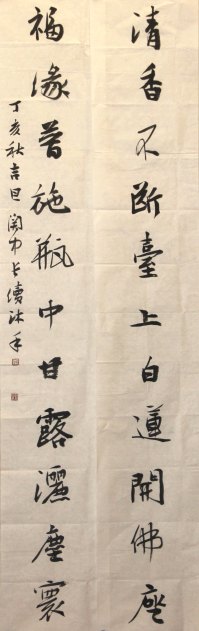 清香不断臺上白蓮開佛座
福緣普施瓶中甘露灑塵寰
丁亥秋吉旦関中續沐手